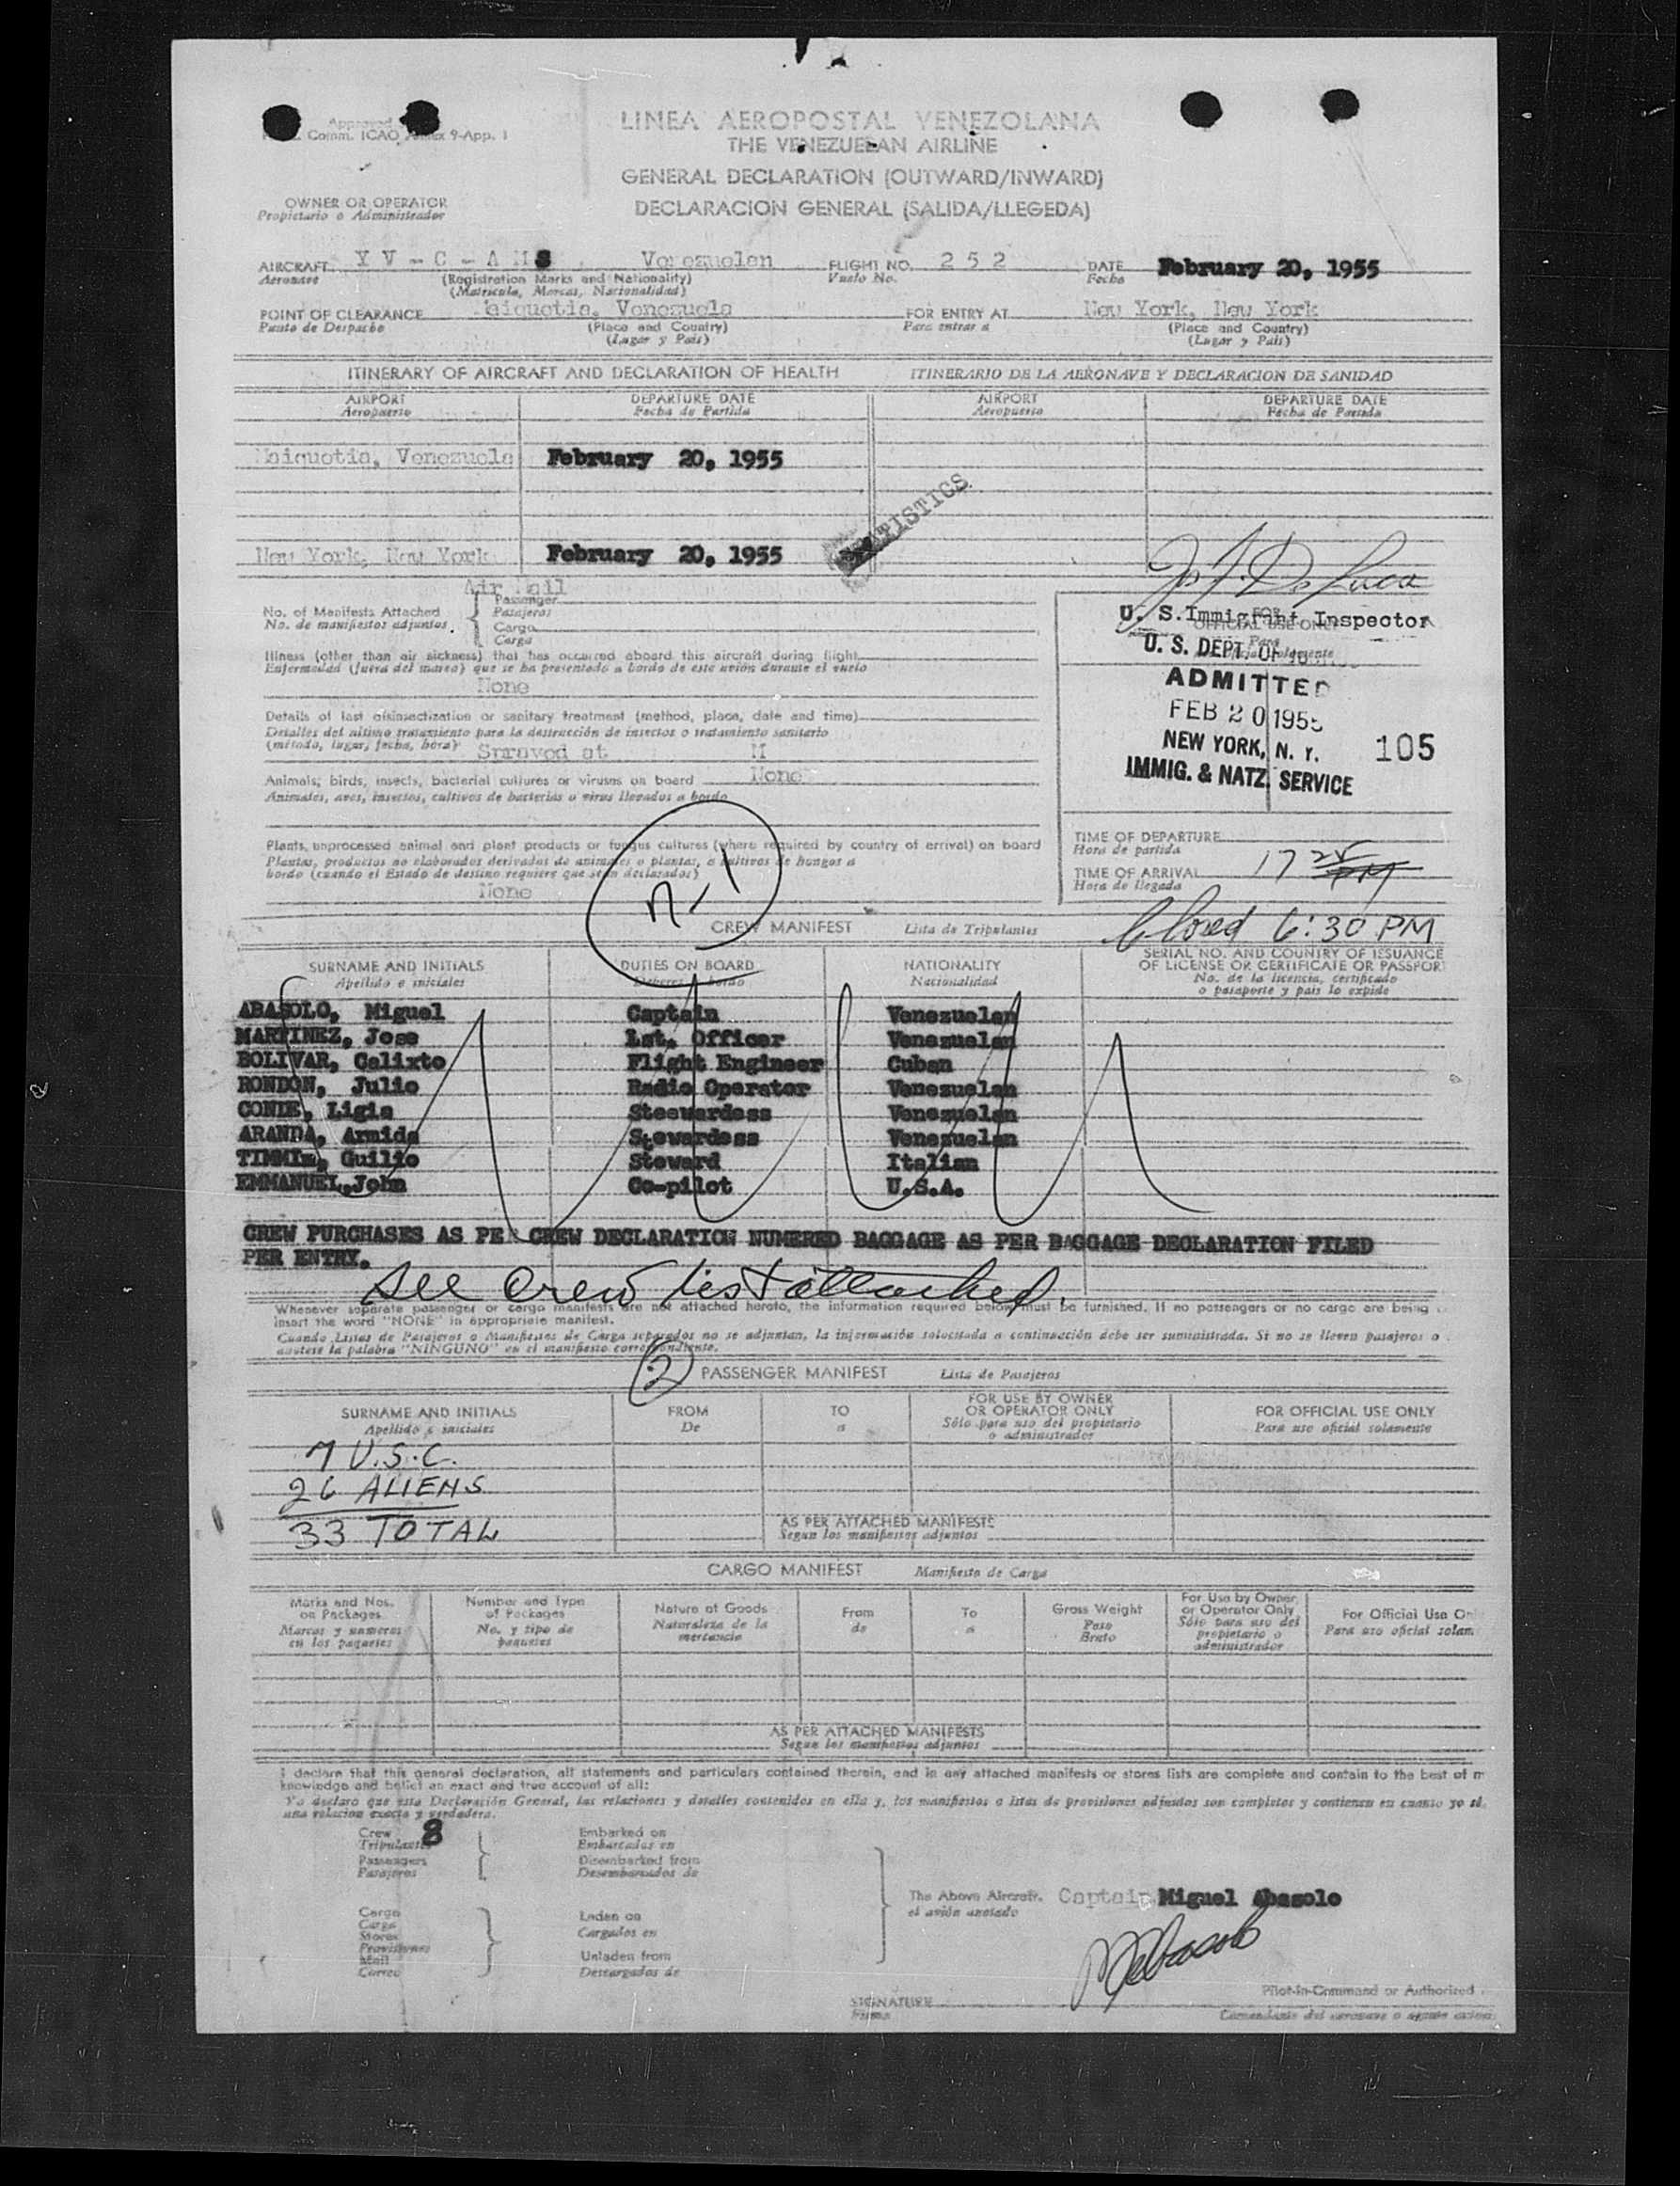 LINEA AEROPOSTAL VENEZOLANA
Comm. ICAO, 9-App. 1
THE VENEZUELAN AIRLINE
GENERAL DECLARATION (OUTWARD/INWARD)
DECLARACION GENERAL (SALIDA/LLEGEDA)
OWNER OR OPERATOR
Propietario o Administrador
AIRCRAFT Y V - C - A M S Venezuelan FLIGHT NO. 2 5 2 DATE February 20, 1955
Aeronave (Registration Marks and Nationality) Vuelo No. Fecha
(Matricula, Marcas, Nacionalidad)
POINT OF CLEARANCE Maiquetia, Venezuela FOR ENTRY AT New York, New York
Punto de Despacho (Place and Country) Para entrar a (Place and Country)
(Lugar y Pais) (Lugar y Pais)
ITINERARY OF AIRCRAFT AND DECLARATION OF HEALTH ITINERARIO DE LA AERONAVE Y DECLARACION DE SANIDAD
AIRPORT DEPARTURE DATE AIRPORT DEPARTURE DATE
Aeropuerto Fecha de Partida Aeropuerto Fecha de Partida
Maiquetia, Venezuela February 20, 1955
STATISTICS
New York, New York February 20, 1955
Air Mail
No. of Manifests Attached Passenger
No. de manifiestos adjuntos. Pasajeros
Cargo
Carga
U. S. Immigrant Inspector
FOR OFFICIAL USE ONLY
U. S. DEPT. OF
ADMITTED
FEB 20 1955
NEW YORK, N. Y. 105
IMMIG. & NATZ. SERVICE
Illness (other than air sickness) that has occurred aboard this aircraft during flight
Enfermedad (fuera del mareo) que se ha presentado a bordo de este avión durante el vuelo
None
Details of last disinsectization or sanitary treatment (method, place, date and time)
Detalles del ultimo tratamiento para la destrucción de insectos o tratamiento sanitario
(método, lugar, fecha, hora)
Sprayed at M
Animals, birds, insects, bacterial cultures or viruses on board None
Animales, aves, insectos, cultivos de bacterias o virus llevados a bordo
Plants, unprocessed animal and plant products or fungus cultures (where required by country of arrival) on board
Plantas, productos no elaborados derivados de animales o plantas, o cultivos de hongos a
bordo (cuando el Estado de destino requiere que sean declarados)
None
TIME OF DEPARTURE
Hora de partida
TIME OF ARRIVAL 17 25 PM
Hora de llegada
Closed 6:30 PM
CREW MANIFEST Lista de Tripulantes
SURNAME AND INITIALS DUTIES ON BOARD NATIONALITY SERIAL NO. AND COUNTRY OF ISSUANCE
OF LICENSE OR CERTIFICATE OR PASSPOR
Apellido e iniciales Deberes a bordo Nacionalidad No. de la licencia, certificado
o pasaporte y pais lo expide
ABASOLO, Miguel Captain Venezuelan
MARTINEZ, Jose 1st. Officer Venezuelan
BOLIVAR, Calixto Flight Engineer Cuban
RONDON, Julio Radio Operator Venezuelan
CONDE, Ligia Steewardess Venezuelan
ARANDA, Armida Stewardess Venezuelan
Guilio Steward Italian
EMMANUEL,John Co-pilot U.S.A.
CREW PURCHASES AS PER CREW DECLARATION NUMERED BAGGAGE AS PER BAGGAGE DECLARATION FILED
PER ENTRY.
See Crew list attached.
Whenever separate passenger or cargo manifests are not attached hereto, the information required below must be furnished. If no passengers or no cargo are being
insert the word "NONE" in appropriate manifest.
Cuando Listas de Pasajeros o Manifiestos de Carga separados no se adjuntan, la información solocitada a continuación debe ser suministrada. Si no se lleven pasajeros o
anótese la palabra "NINGUNO" en el manifiesto correspondiente.
2 PASSENGER MANIFEST Lista de Pasajeros
SURNAME AND INITIALS FROM TO FOR USE BY OWNER FOR OFFICIAL USE ONLY
OR OPERATOR ONLY
Apellido e iniciales De a Sólo para uso del propietario Para uso oficial solamente
o administrador
7 U.S.C.
26 ALIENS
33 TOTAL
AS PER ATTACHED MANIFESTS
Segun los manifiestos adjuntos
CARGO MANIFEST Manifiesto de Carga
Marks and Nos. Number and Type Nature of Goods From To Gross Weight For Use by Owner For Official Use
on Packages of Packages or Operator Only
Marcas y numeros No. y tipo de Naturaleza de la de a Peso Sólo para uso del Para uso oficial solam
en los paquetes paquetes mercancia Bruto propietario o
administrador
AS PER ATTACHED MANIFESTS
Segun los manifiestos adjuntos
I declare that this general declaration, all statements and particulars contained therein, and in any attached manifests or stores lists are complete and contain to the best of m
knowledge and belief an exact and true account of all:
Yo declaro que esta Declaración General, las relaciones y detalles contenidos en ella y, los manifiestos o listas de provisiones adjuntos son completos y contienen en cuanto yo sé
una relacion exacta y verdadera.
Crew 8 Embarked on
Tripulantes Embarcados en
Passengers Disembarked from
Pasajeros Desembarcados de
The Above Aircraft. Captain Miguel Abasolo
el avión anotado
Cargo Laden on
Carga Cargados en
Stores
Provisiones
Mail Unladen from
Correo Descargados de
SIGNATURE Pilot-in-Command or Authorized
Firma